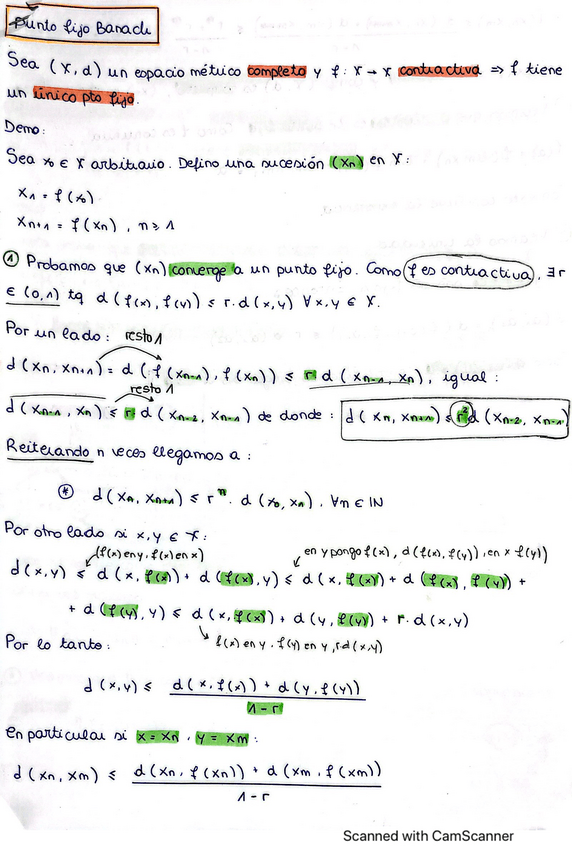 Punto fijo Banach
Sea (X, d) un espacio métrico completo y f: X → X contractiva ⇒ f tiene
un único pto fijo.
Demo:
Sea x₀ ∈ X arbitrario. Defino una sucesión (xn) en X:
x₁ = f(x₀)
xn+1 = f(xn), n ≥ 1
① Probamos que (xn) converge a un punto fijo. Como f es contractiva, ∃ r
∈ (0,1) tq d(f(x), f(y)) ≤ r·d(x,y) ∀ x,y ∈ X.
Por un lado: resto 1
d(xn, xn+1) = d(f(xn-1), f(xn)) ≤ r d(xn-1, xn), igual:
resto 1
d(xn-1, xn) ≤ r d(xn-2, xn-1) de donde: d(xn, xn+1) ≤ r² d(xn-2, xn-1)
Reiterando n veces llegamos a:
⊛ d(xn, xn+1) ≤ rⁿ · d(x₀, x₁), ∀n ∈ ℕ
Por otro lado si x,y ∈ X:
(f(x) en y, f(x) en x) en y pongo f(x), d(f(x), f(y)), en x f(y))
d(x,y) ≤ d(x, f(x)) + d(f(x), y) ≤ d(x, f(x)) + d(f(x), f(y)) +
+ d(f(y), y) ≤ d(x, f(x)) + d(y, f(y)) + r·d(x,y)
f(x) en y, f(y) en y, r·d(x,y)
Por lo tanto:
d(x,y) ≤ d(x, f(x)) + d(y, f(y))
1-r
En particular si x = xn, y = xm:
d(xn, xm) ≤ d(xn, f(xn)) + d(xm, f(xm))
1-r
Scanned with CamScanner